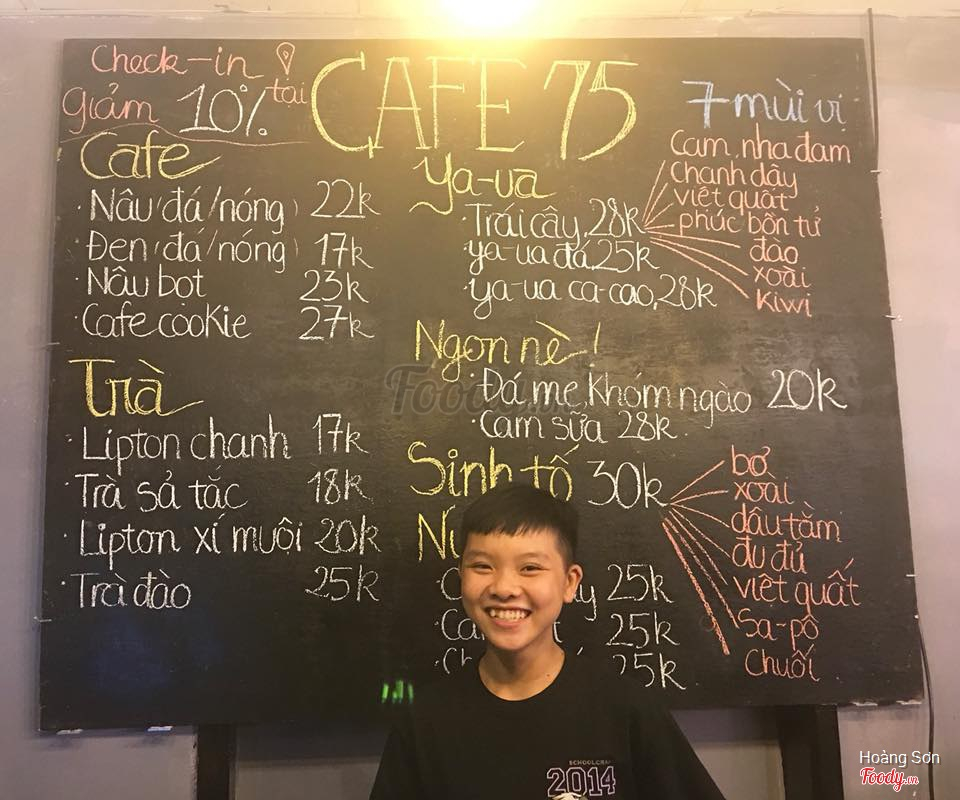 Check-in tại
giảm 10%
CAFE 75
Cafe
· Nâu (đá/nóng) 22k
· Đen (đá/nóng) 17k
· Nâu bọt 23k
· Cafe cookie 27k
Trà
· Lipton chanh 17k
· Trà sả tắc 18k
· Lipton xí muội 20k
· Trà đào 25k
Ya-ua
· Trái cây, 28k
· ya-ua đá, 25k
· ya-ua ca-cao, 28k
7 mùi vị
Cam, nha đam
Chanh dây
việt quất
phúc bồn tử
đào
xoài
kiwi
Ngon nè!
· Đá me, khóm ngào 20k
· Cam sữa 28k
Sinh tố 30k
bơ
xoài
dâu tằm
đu đủ
việt quất
Sa-pô
Chuối
25k
25k
25k
Foody.vn
SCHOOLCRAF
2014
Hoàng Sơn
Foody.vn